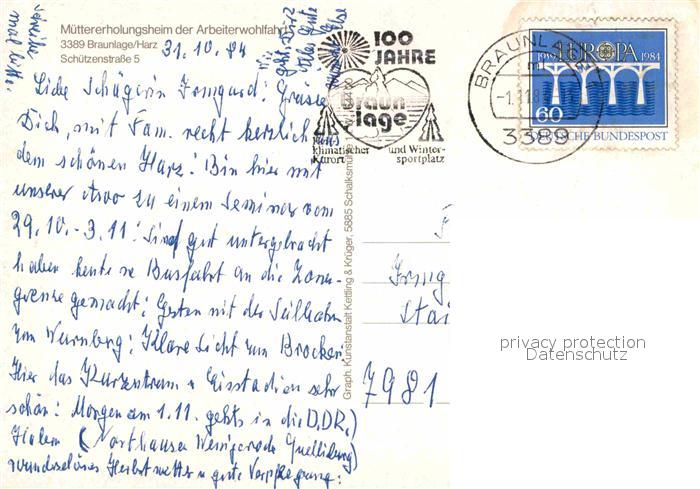 Müttererholungsheim der Arbeiterwohlfahrt
3389 Braunlage/Harz
Schützenstraße 5
31.10.84
Liebe Schägerin Irmgard! Grüsse
Dich, mit Fam. recht herzlich aus
dem schönen Harz! Bin hier mit
unserer Awo zu einem Seminar vom
29.10.-3.11! Sind gut untergebracht
haben heute ne Busfahrt an die Zonen-
grenze gemacht! Gestern mit der Seilbahn
zum Wurmberg! Klare Sicht zum Brocken
Hier das Kurzentrum u Eisstadion sehr
schön! Morgen am 1.11. gehts in die D.D.R.
(Northausen Wernigerode Quedlinburg)
wunderschönes Herbstwetter u gute Verpflegung!
schreibe
mal bitte.
100
JAHRE
Braun
lage
heilklimatischer
Kurort
und Winter-
sportplatz
BRAUNLAGE 1
3389
1959 EUROPA 1984
60
DEUTSCHE BUNDESPOST
Graph. Kunstanstalt Kettling & Krüger, 5885 Schalksmühle
F
Irmg
Stai
7981
privacy protection
Datenschutz